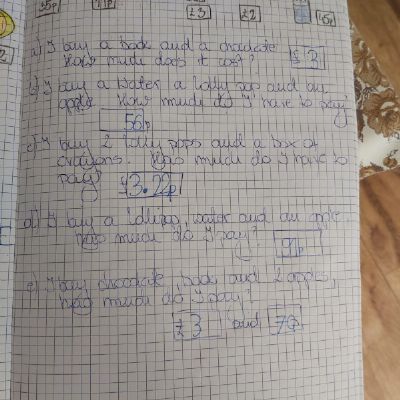 35p £3 £2 45p
2
a) I buy a book and a chocolate
How much does it cost? £3
b) I buy a water a lolly pop and an
apple. How much do I have to pay
56p
c) I buy 2 lolly pops and a box of
crayons. How much do I have to
pay? £3.22p
d) I buy a water and an apple
How much do I pay?
e) I buy chocolate, book and 2 apples,
how much do I pay?
£3 and 70